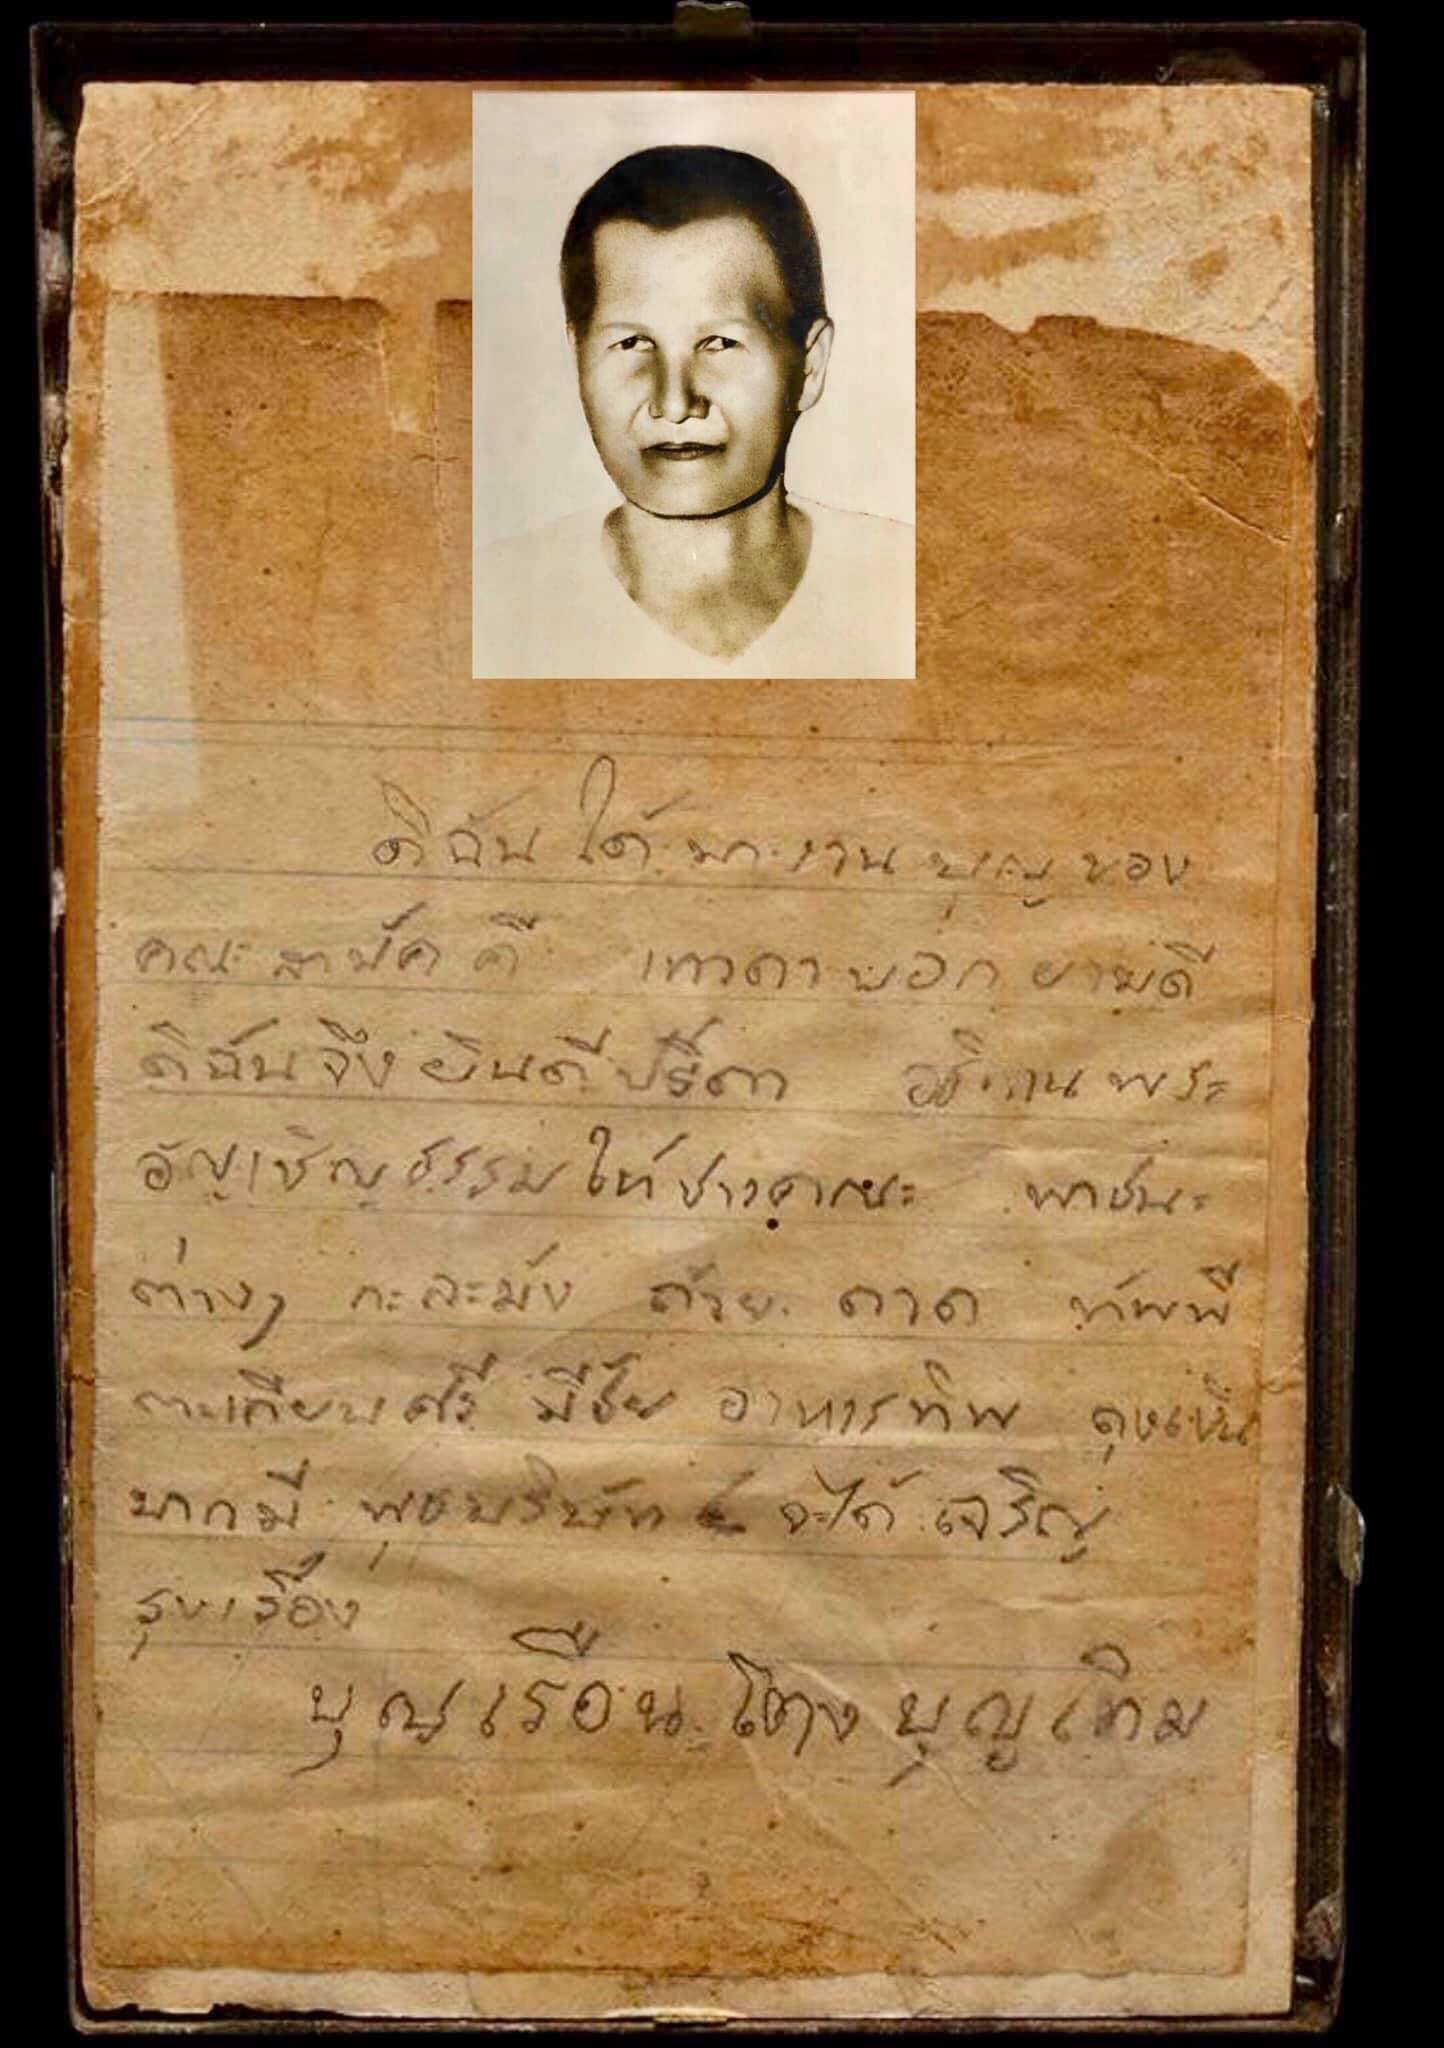 ดิฉันได้มางานบุญของ
คณะสามัคคี เทวดาบอกยามดี
ดิฉันจึงยินดีปรีดา อธิฐานพระ
อัญเชิญธรรมให้ชาวคณะ ภาชนะ
ต่างๆ กะละมัง ถ้วย ถาด ทัพพี
ตะเกียบศรีมีชัย อาหารทิพ ถุงเงิน
มากมี พุธบริษัท จะได้เจริญ
รุงเรือง
บุญเรือน โตงบุญเติม